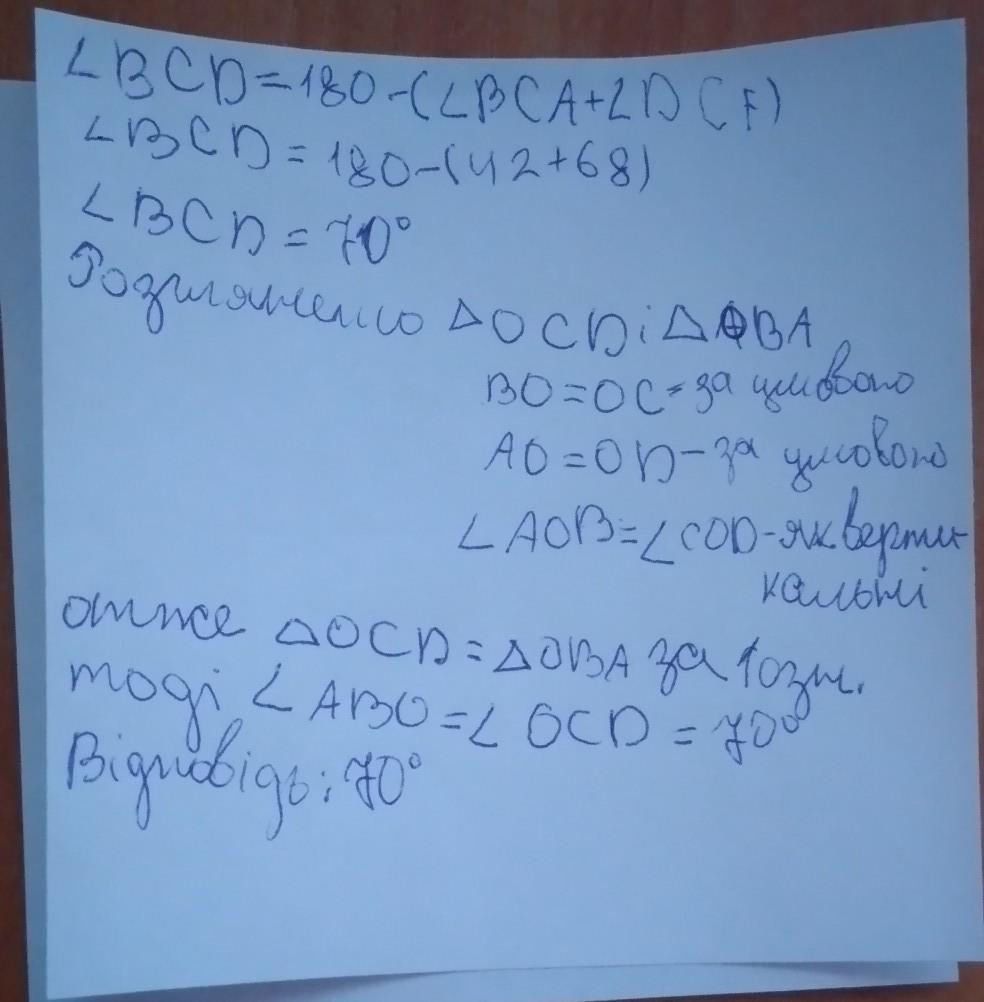 ∠BCD=180-(∠BCA+∠DCF)
∠BCD=180-(42+68)
∠BCD=70°
Розглянемо △OCD і △OBA
BO=OC-за умовою
AO=OD-за умовою
∠AOB=∠COD-як верти-
кальні
отже △OCD=△OBA за 1озн.
тоді ∠ABO=∠OCD=70°
Відповідь: 70°